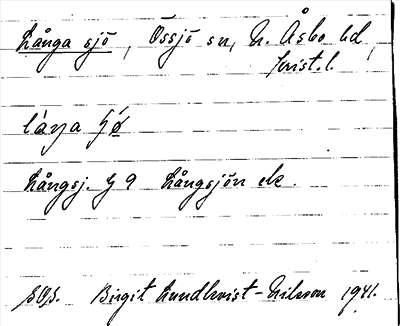 Långa sjö, Össjö sn, N. Åsbo hd,
Krist. l.
Långsj. G 9 Långsjön elc.
Birgit Lundkvist-Nilsson 1941.